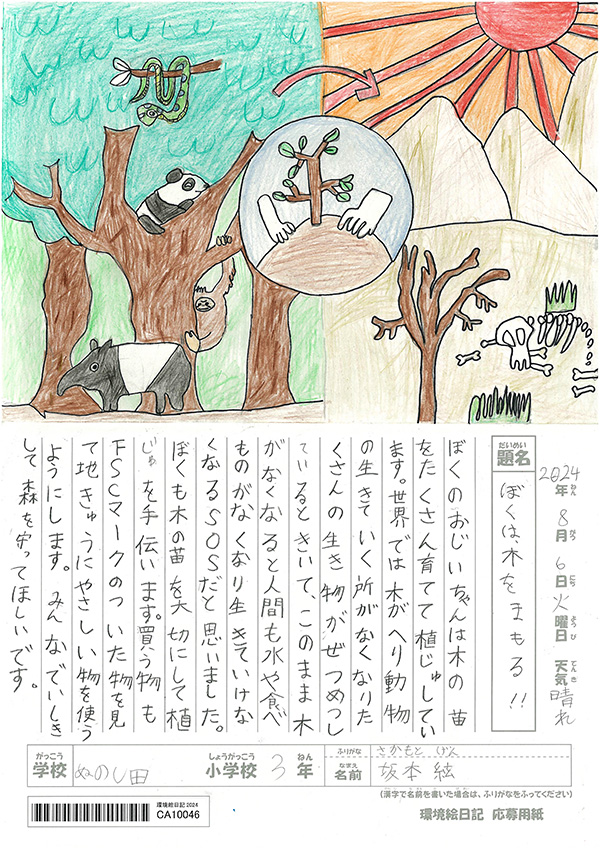 だいめい
題名
ぼくは、木をまもる!!
2024年ねん8月がつ6日にち火曜日ようび 天気てんき晴れ
ぼくのおじいちゃんは木の苗
をたくさん育てて植じゅしてい
ます。世界では木がへり動物
の生きていく所がなくなりた
くさんの生き物がぜつめつし
ているときいて、このまま木
がなくなると人間も水や食べ
ものがなくなり生きていけな
くなるSOSだと思いました。
ぼくも木の苗を大切にして植
じゅを手伝います。買う物も
FSCマークのついた物を見
て地きゅうにやさしい物を使う
ようにします。みんなでいしき
して森を守ってほしいです。
がっこう
学校
ぬのし田
しょうがっこう
小学校
3
ねん
年
ふりがな
さかもと げん
なまえ
名前
坂本 絃
(漢字で名前を書いた場合は、ふりがなをふってください)
環境絵日記 2024
CA10046
環境絵日記 応募用紙